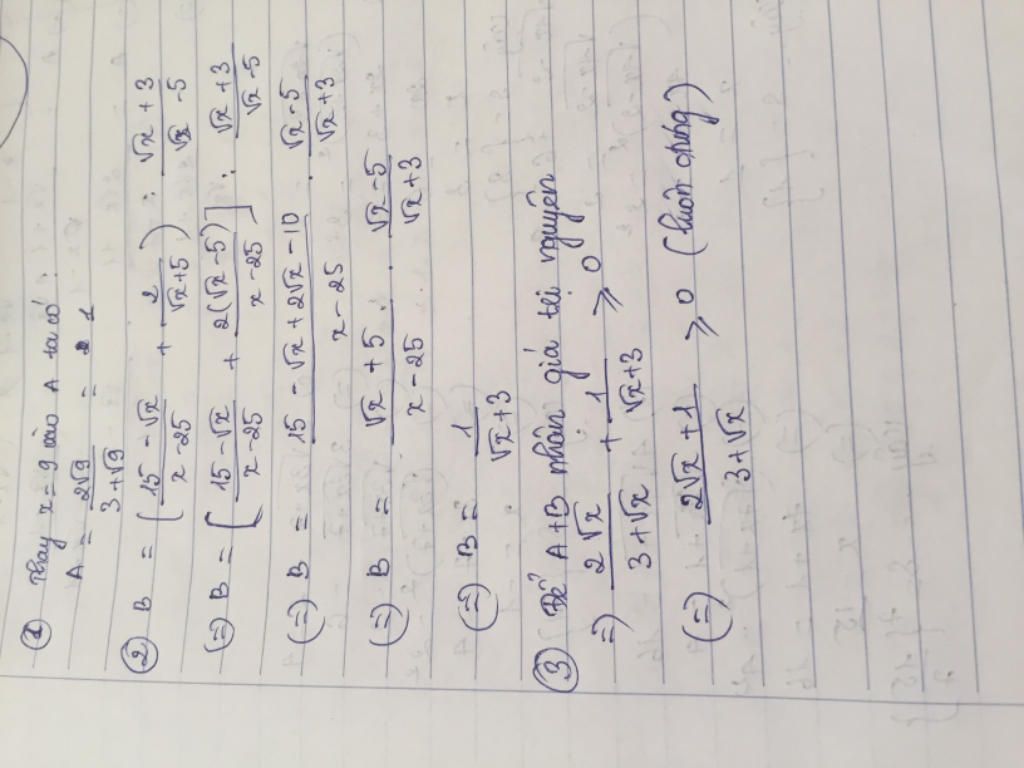 ① Thay x = 9 vào A ta có:
A = 2√9 / (3+√9) = 1
② B = ((15 - √x)/(x - 25) + 2/(√x+5)) : (√x + 3)/(√x - 5)
(=) B = [(15 - √x)/(x - 25) + 2(√x - 5)/(x - 25)] : (√x + 3)/(√x - 5)
(=) B = (15 - √x + 2√x - 10)/(x - 25) . (√x - 5)/(√x + 3)
(=) B = (√x + 5)/(x - 25) . (√x - 5)/(√x + 3)
(=) B = 1/(√x + 3)
③ Để A+B nhận giá trị nguyên
=) 2√x/(3 + √x) + 1/(√x+3) ⩾ 0
(=) (2√x + 1)/(3+√x) ⩾ 0 (luôn đúng)